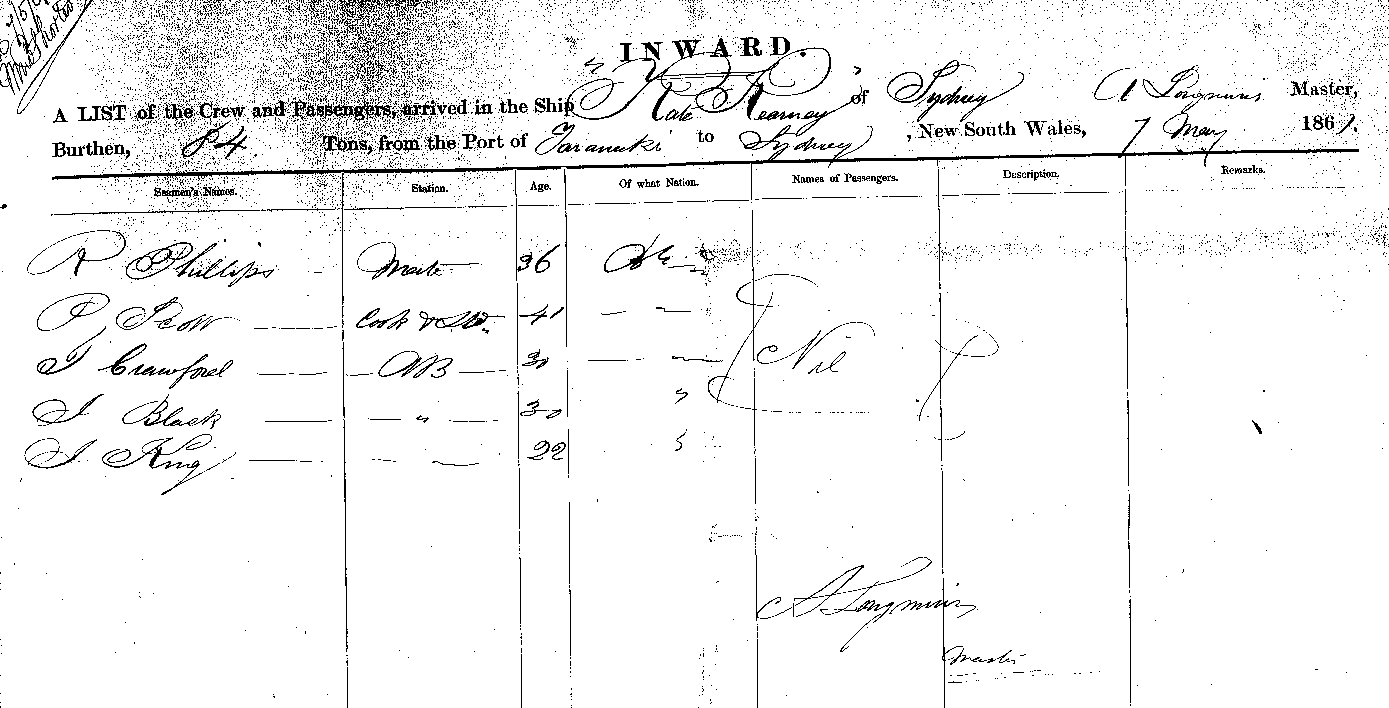 INWARD.
A LIST of the Crew and Passengers, arrived in the Ship "Kate Kearney" of Sydney A Longmuir Master,
Burthen, 84 Tons, from the Port of Taranaki to Sydney, New South Wales, 7 May 1861.
Seamen's Names. Station. Age. Of what Nation. Names of Passengers. Description. Remarks.
R Phillips Mate 36
P Scott Cook & Std. 41 — —
J Crawford — AB — 30 — —
J Black — — " — 30 " Nil
J King — — — 22 "
A Longmuir
Master